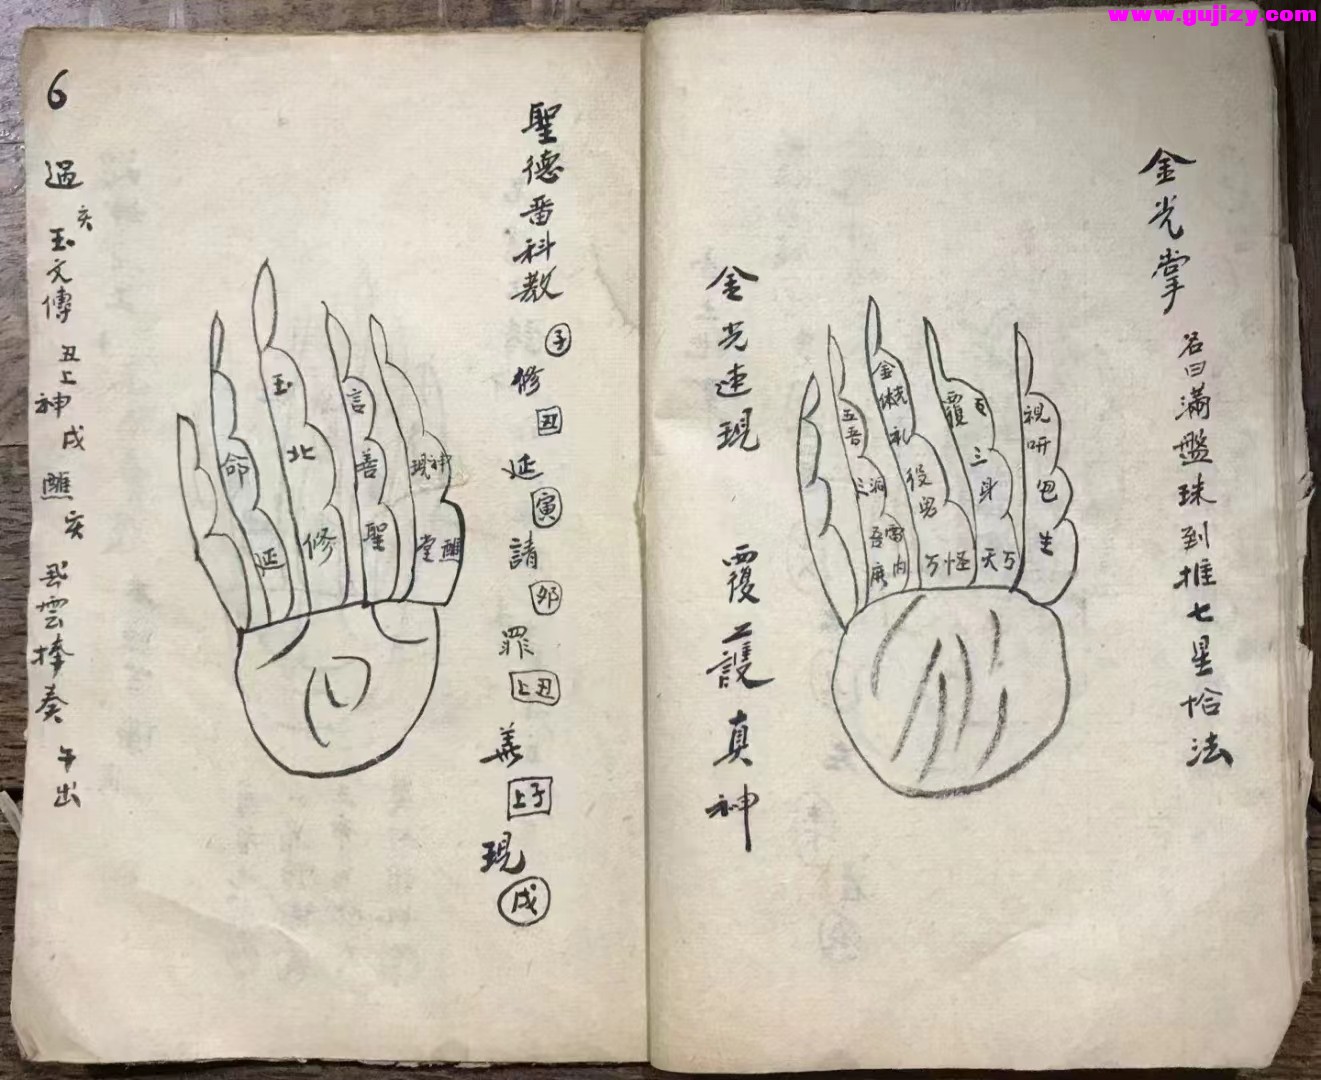 www.gujizy.com
金光掌
名曰滿盤珠到推七星恰法
視 呬 包 生
覆 三 身 丐 天
金 光 体 礼 役 男 丐 怪
五 吾 洞 雷 内
金光速現 覆護真神
聖德番科教 子
修 丑
延 寅
請 卯
罪 上丑
善 上子
現 戌
現神 醮堂
言 善 聖
玉 北 修
命 延
6
過 亥 玉文傳 丑上 神 戌 醮 亥 雲捧奏 午出